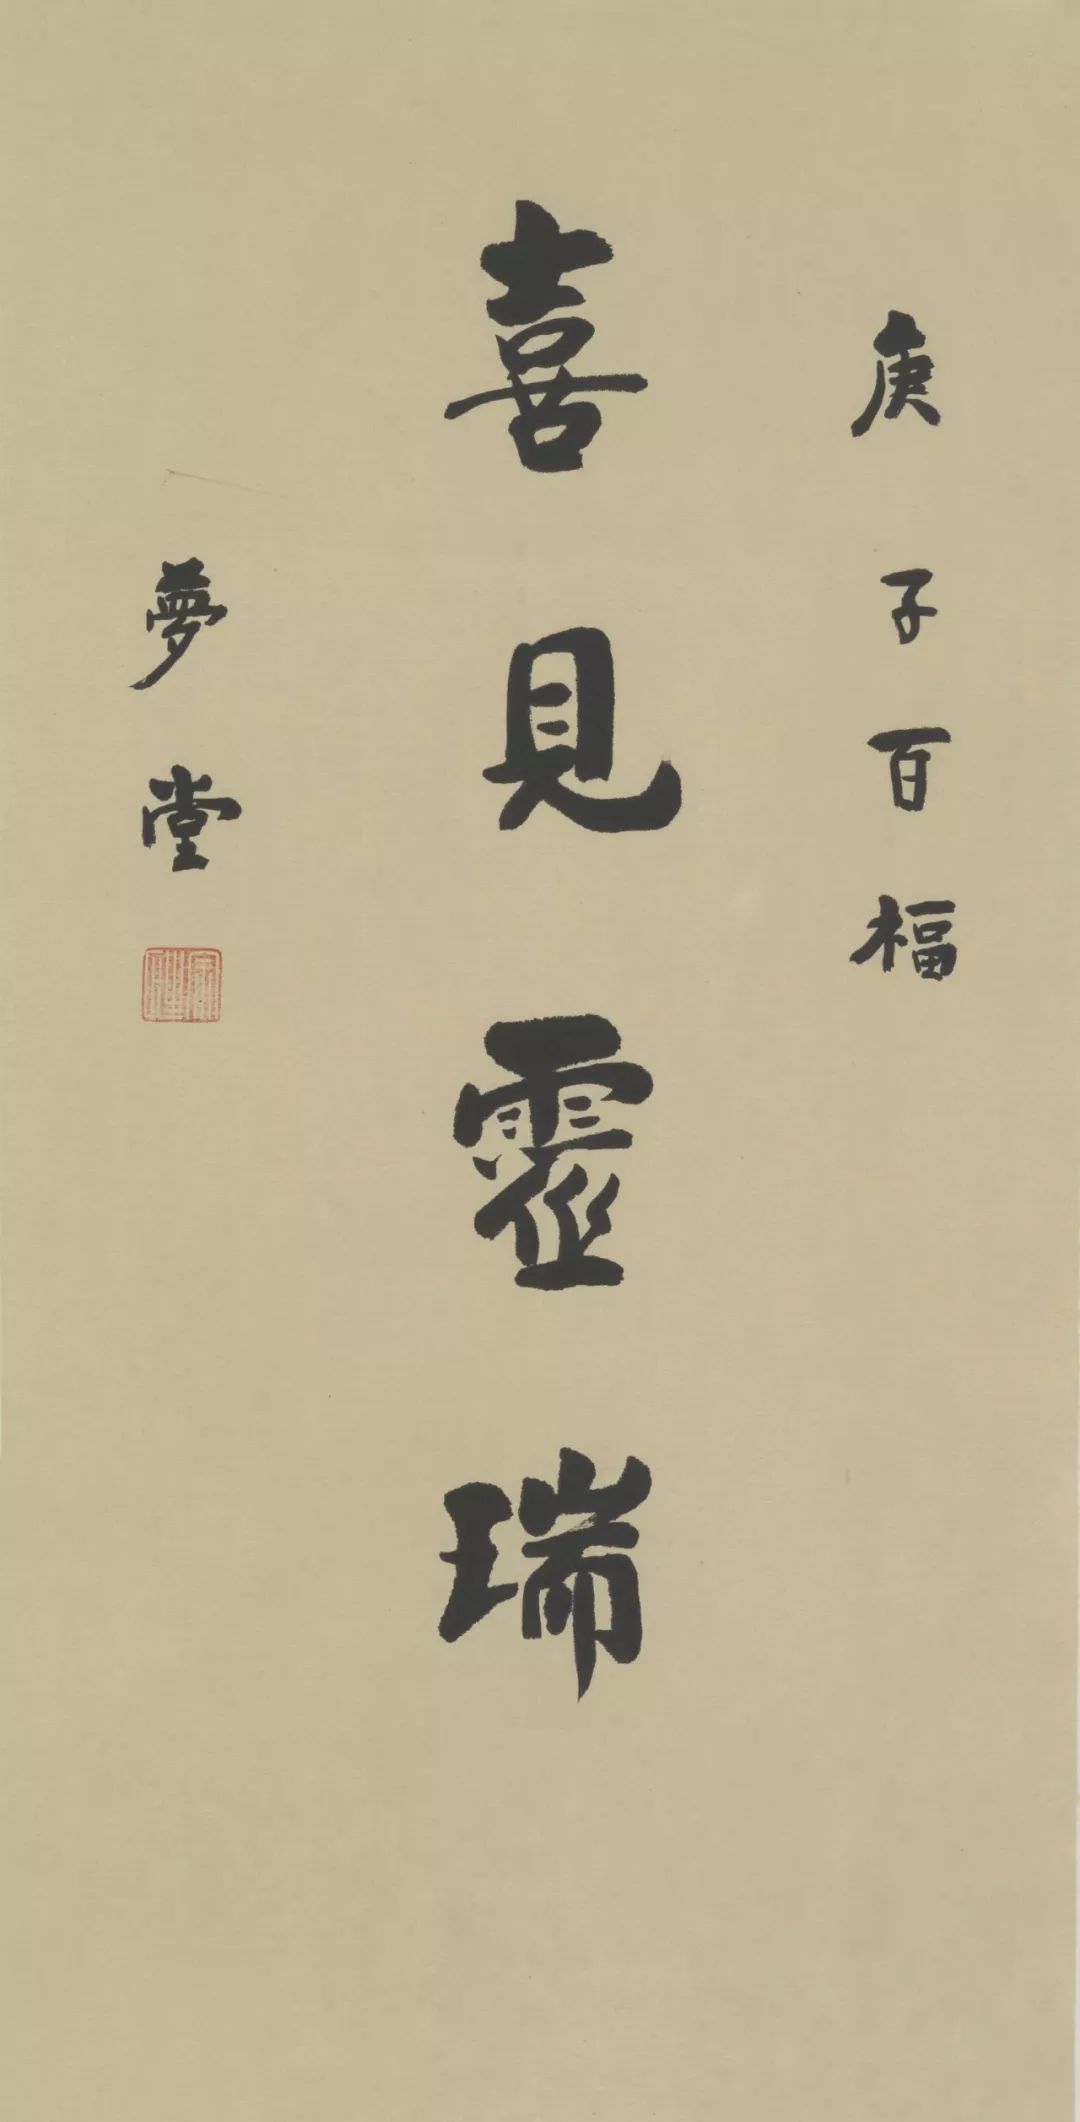 庚子百福
喜見靈瑞
夢堂